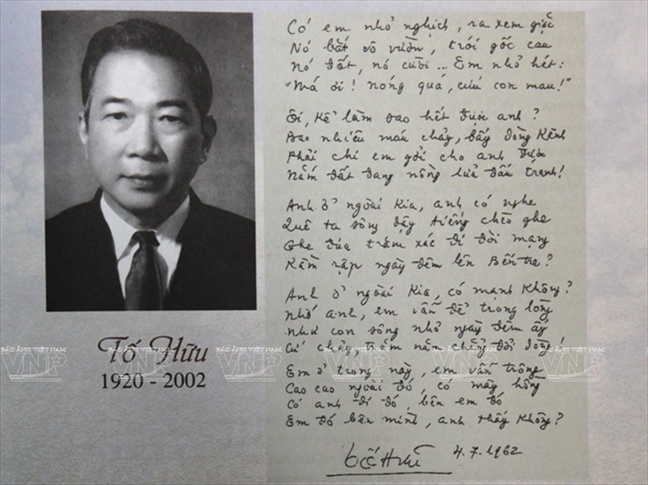 Có em nhỏ nghịch, ra xem giặc
Nó bắt vô vườn, trói gốc cau
Nó đốt, nó cười... Em nhỏ hét:
"Má ơi! nóng quá, cứu con mau!"
Ôi, Kể làm sao hết được anh?
Bao nhiêu máu chảy, bấy dòng Kênh
Phải chi em gởi cho anh được
Nắm đất đang nồng lửa đấu tranh!
Anh ở ngoài Kia, anh có nghe
Quê ta sông dậy tiếng chèo ghe
Ghe đưa trăm xác đi đòi mạng
Rầm rập ngày đêm lên Bến tre?
Anh ở ngoài Kia, có mạnh Không?
Nhớ anh, em vẫn để trong lòng
Như con sông nhỏ ngày đêm ấy
Cứ chảy, trăm năm chẳng đổi dòng!
Em ở trong này, em vẫn trông
Cao cao ngoài đó, có mây hồng
Có anh đi đó, bên em đó
Em đó bên mình, anh thấy Không?
Tố Hữu 4.7.1962
Tố Hữu
1920 - 2002
BÁO ẢNH VIỆT NAM
VNP